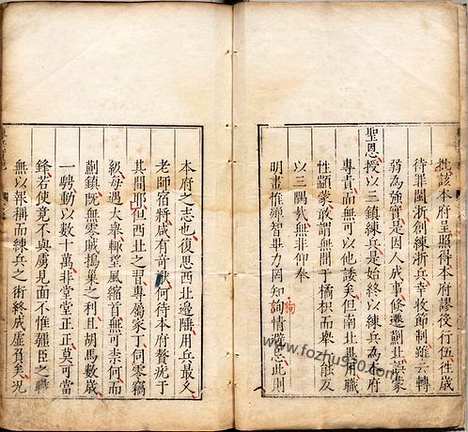 批該本府呈照得本府謬役行伍
待罪閩浙創練浙兵幸收節制雖云轉
弱為強實是因人成事倏遷薊北誤蒙
聖恩授以三鎮練兵是始終以練兵為本府
專責而無可以他諉矣但南北異用職
性顓蒙敢謂無間于橘枳而舉
以三隅哉無非仰奉
明畫惟殫智畢力罔知徇情避忌此則
本府之志也復思西北邊陲用兵最久
老師宿將咸有奇謨何待本府贅疣于
其間耶但西北之習專屬家丁伺零竊
級每遇大舉輒望風縮首無可奈何而
薊鎮既無零賊搗巢之利且胡馬數歲
一騁動以數十萬非堂堂正正莫可當
鋒若使竟不與虜見面不惟疆臣之職
無以舉稱而練兵之術終成虛套矣況
www.fozhu920.com